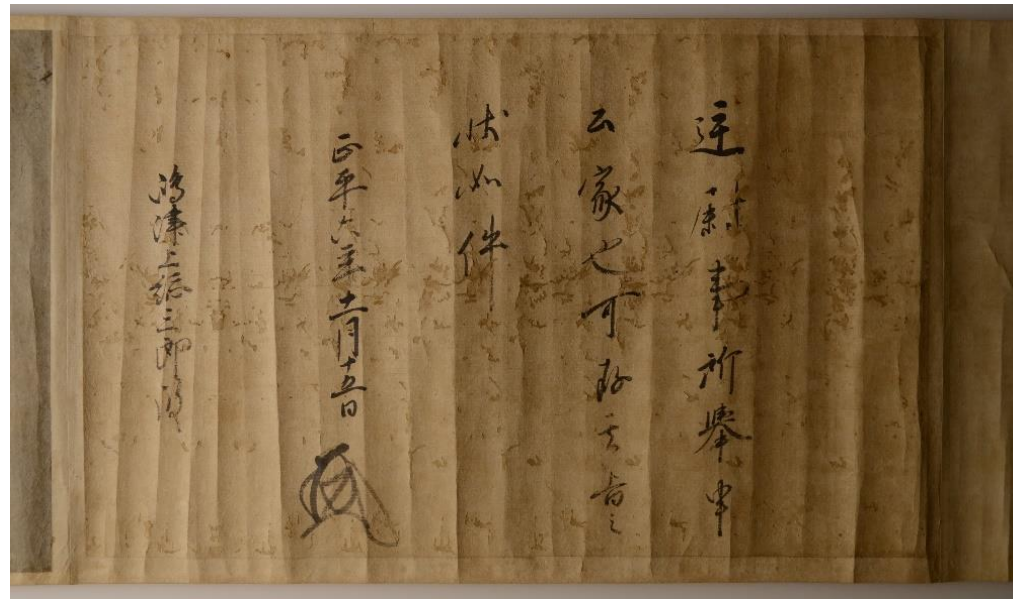 遠康事所挙申
公家也可存其旨之
状如件
正平六年十二月十五日
嶋津上総三郎殿